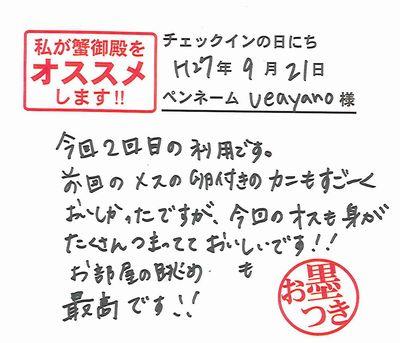 私が蟹御殿を
オススメ
します!!
チェックインの日にち
H27年9月21日
ペンネーム veayano様
今回2回目の利用です。
前回のメスの卵付きのカニもすごーく
おいしかったですが、今回のオスも身が
たくさんつまってておいしいです!!
お部屋の眺め も
最高です!!
お墨つき